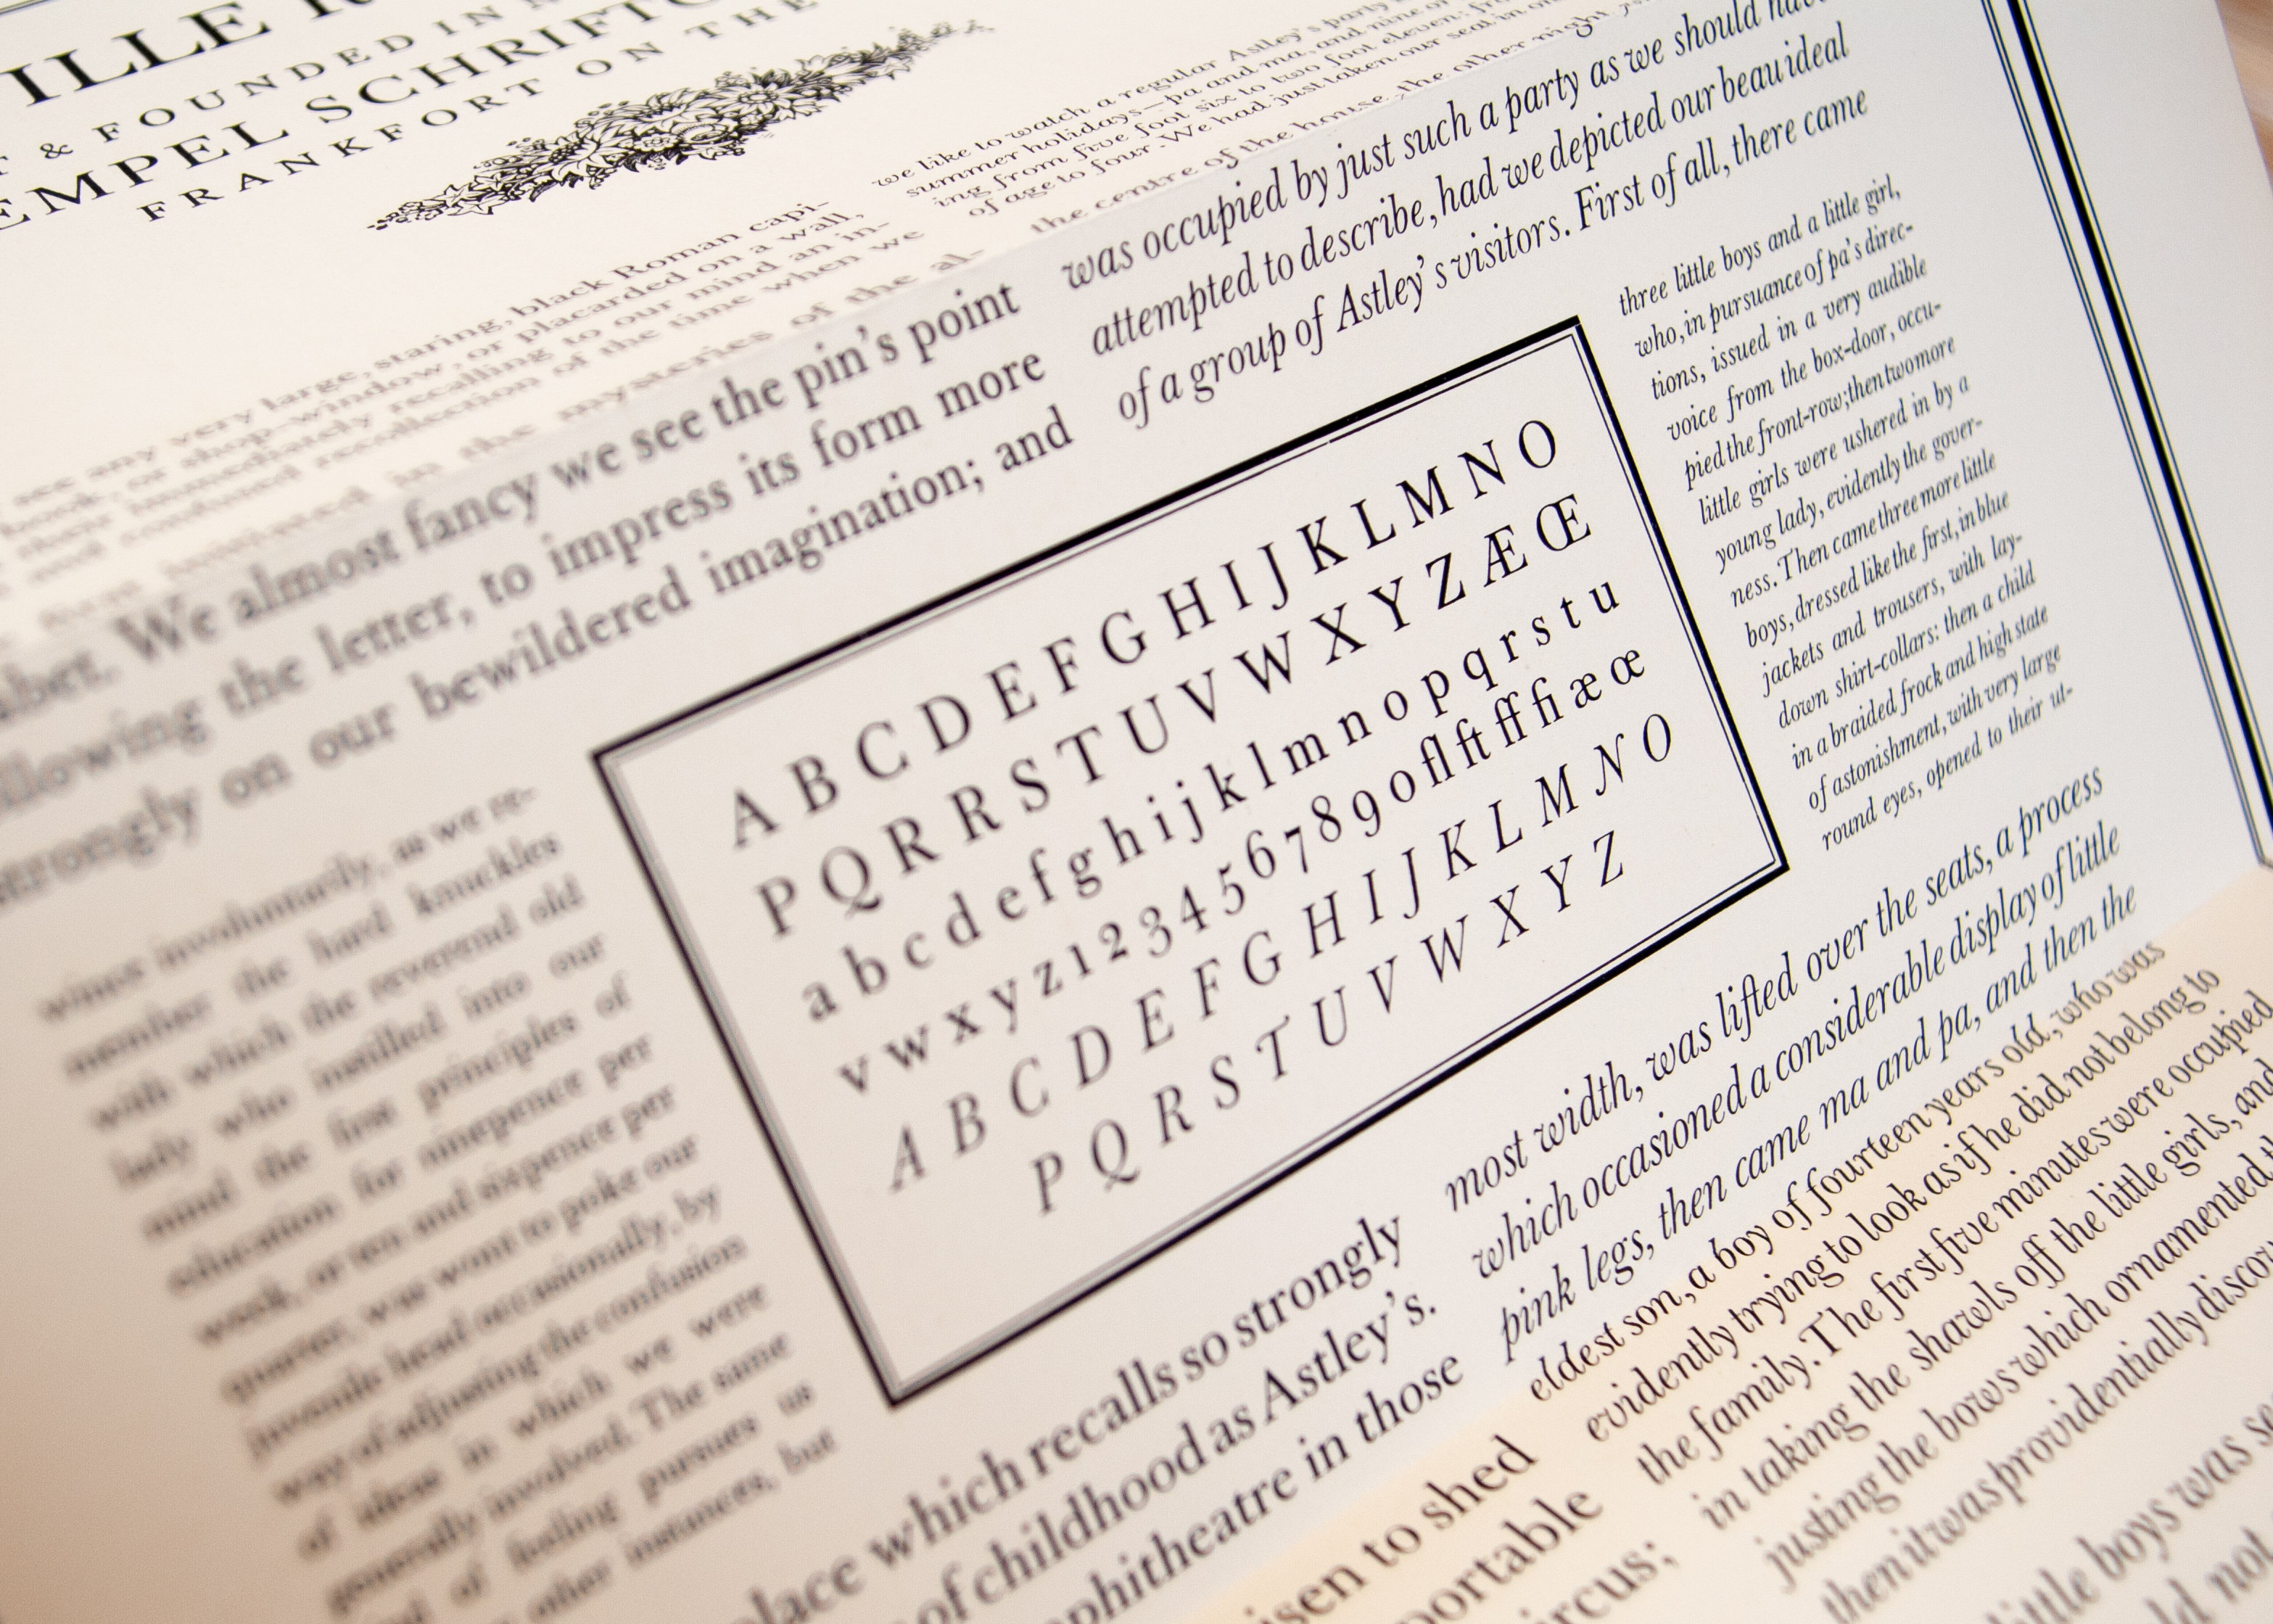 ILLE
& FOUNDED IN
EMPEL SCHRIFT
FRANKFORT ON THE
see any very large, staring, black Roman capi-
book, or shop-window, or placarded on a wall,
immediately recalling to our mind an in-
and confused recollection of the time when we
initiated in the mysteries of the al-
abet. We almost fancy we see the pin's point
llowing the letter, to impress its form more
strongly on our bewildered imagination; and
wince involuntarily, as we re-
member the hard knuckles
with which the reverend old
lady who instilled into our
mind the first principles of
education for ninepence per
week, or ten and sixpence per
quarter, was wont to poke our
juvenile head occasionally, by
way of adjusting the confusion
of ideas in which we were
generally involved. The same
of feeling pursues us
other instances, but
place which recalls so strongly
of childhood as Astley's.
phitheatre in those
isen to shed
portable
ircus;
A B C D E F G H I J K L M N O
P Q R R S T U V W X Y Z Æ Œ
a b c d e f g h i j k l m n o p q r s t u
v w x y z 1 2 3 4 5 6 7 8 9 0 fl ft ff fi æ œ
A B C D E F G H I J K L M N O
P Q R S T U V W X Y Z
we like to watch a regular Astley's party
summer holidays—pa and ma, and nine or
ing from five foot six to two foot eleven: fr
of age to four. We had just taken our seat in
the centre of the house, the other night,
was occupied by just such a party as we should have
attempted to describe, had we depicted our beau ideal
of a group of Astley's visitors. First of all, there came
three little boys and a little girl,
who, in pursuance of pa's direc-
tions, issued in a very audible
voice from the box-door, occu-
pied the front-row; then two more
little girls were ushered in by a
young lady, evidently the gover-
ness. Then came three more little
boys, dressed like the first, in blue
jackets and trousers, with lay-
down shirt-collars: then a child
in a braided frock and high state
of astonishment, with very large
round eyes, opened to their ut-
most width, was lifted over the seats, a process
which occasioned a considerable display of little
pink legs, then came ma and pa, and then the
eldest son, a boy of fourteen years old, who was
evidently trying to look as if he did not belong to
the family. The first five minutes were occupied
in taking the shawls off the little girls, and
justing the bows which ornamented
then it was providentially discov
ittle boys was